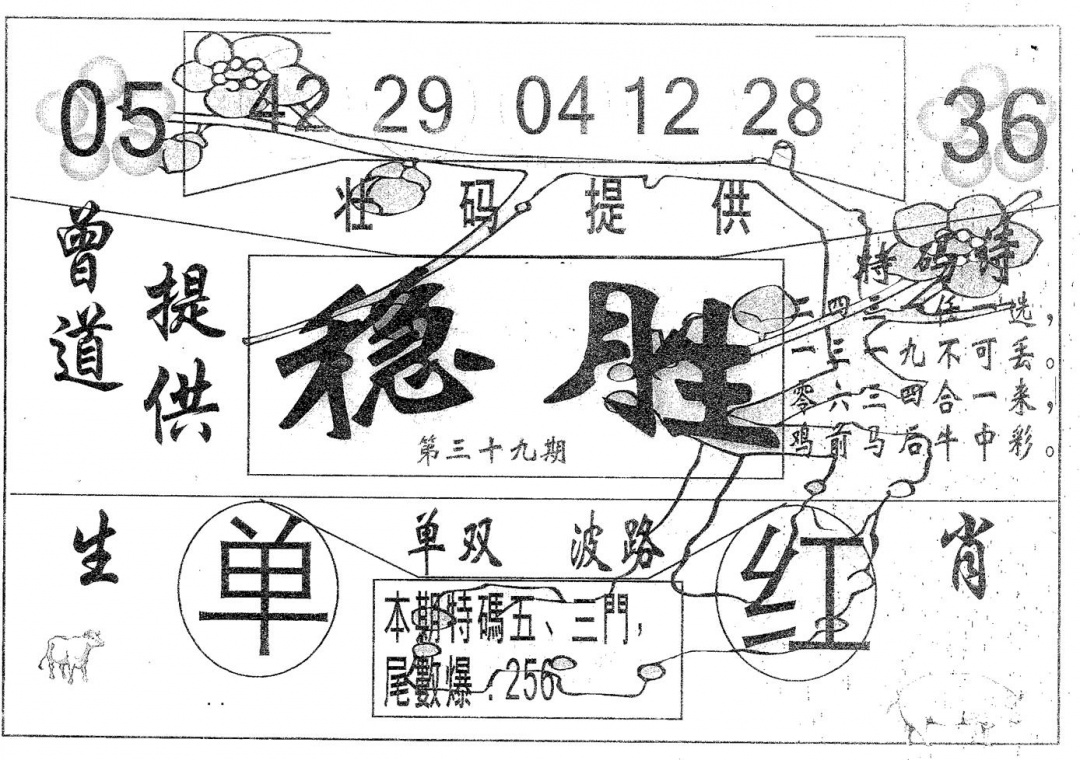 05 42 29 04 12 28 36
壮码提供
曾道
提供
特码诗
稳胜
二四三一任一选，
一三一九不可丢。
零六三四合一来，
鸡前马后牛中彩。
第三十九期
生
单
单双 波路
红
肖
本期特碼五、三門，
尾數爆：256